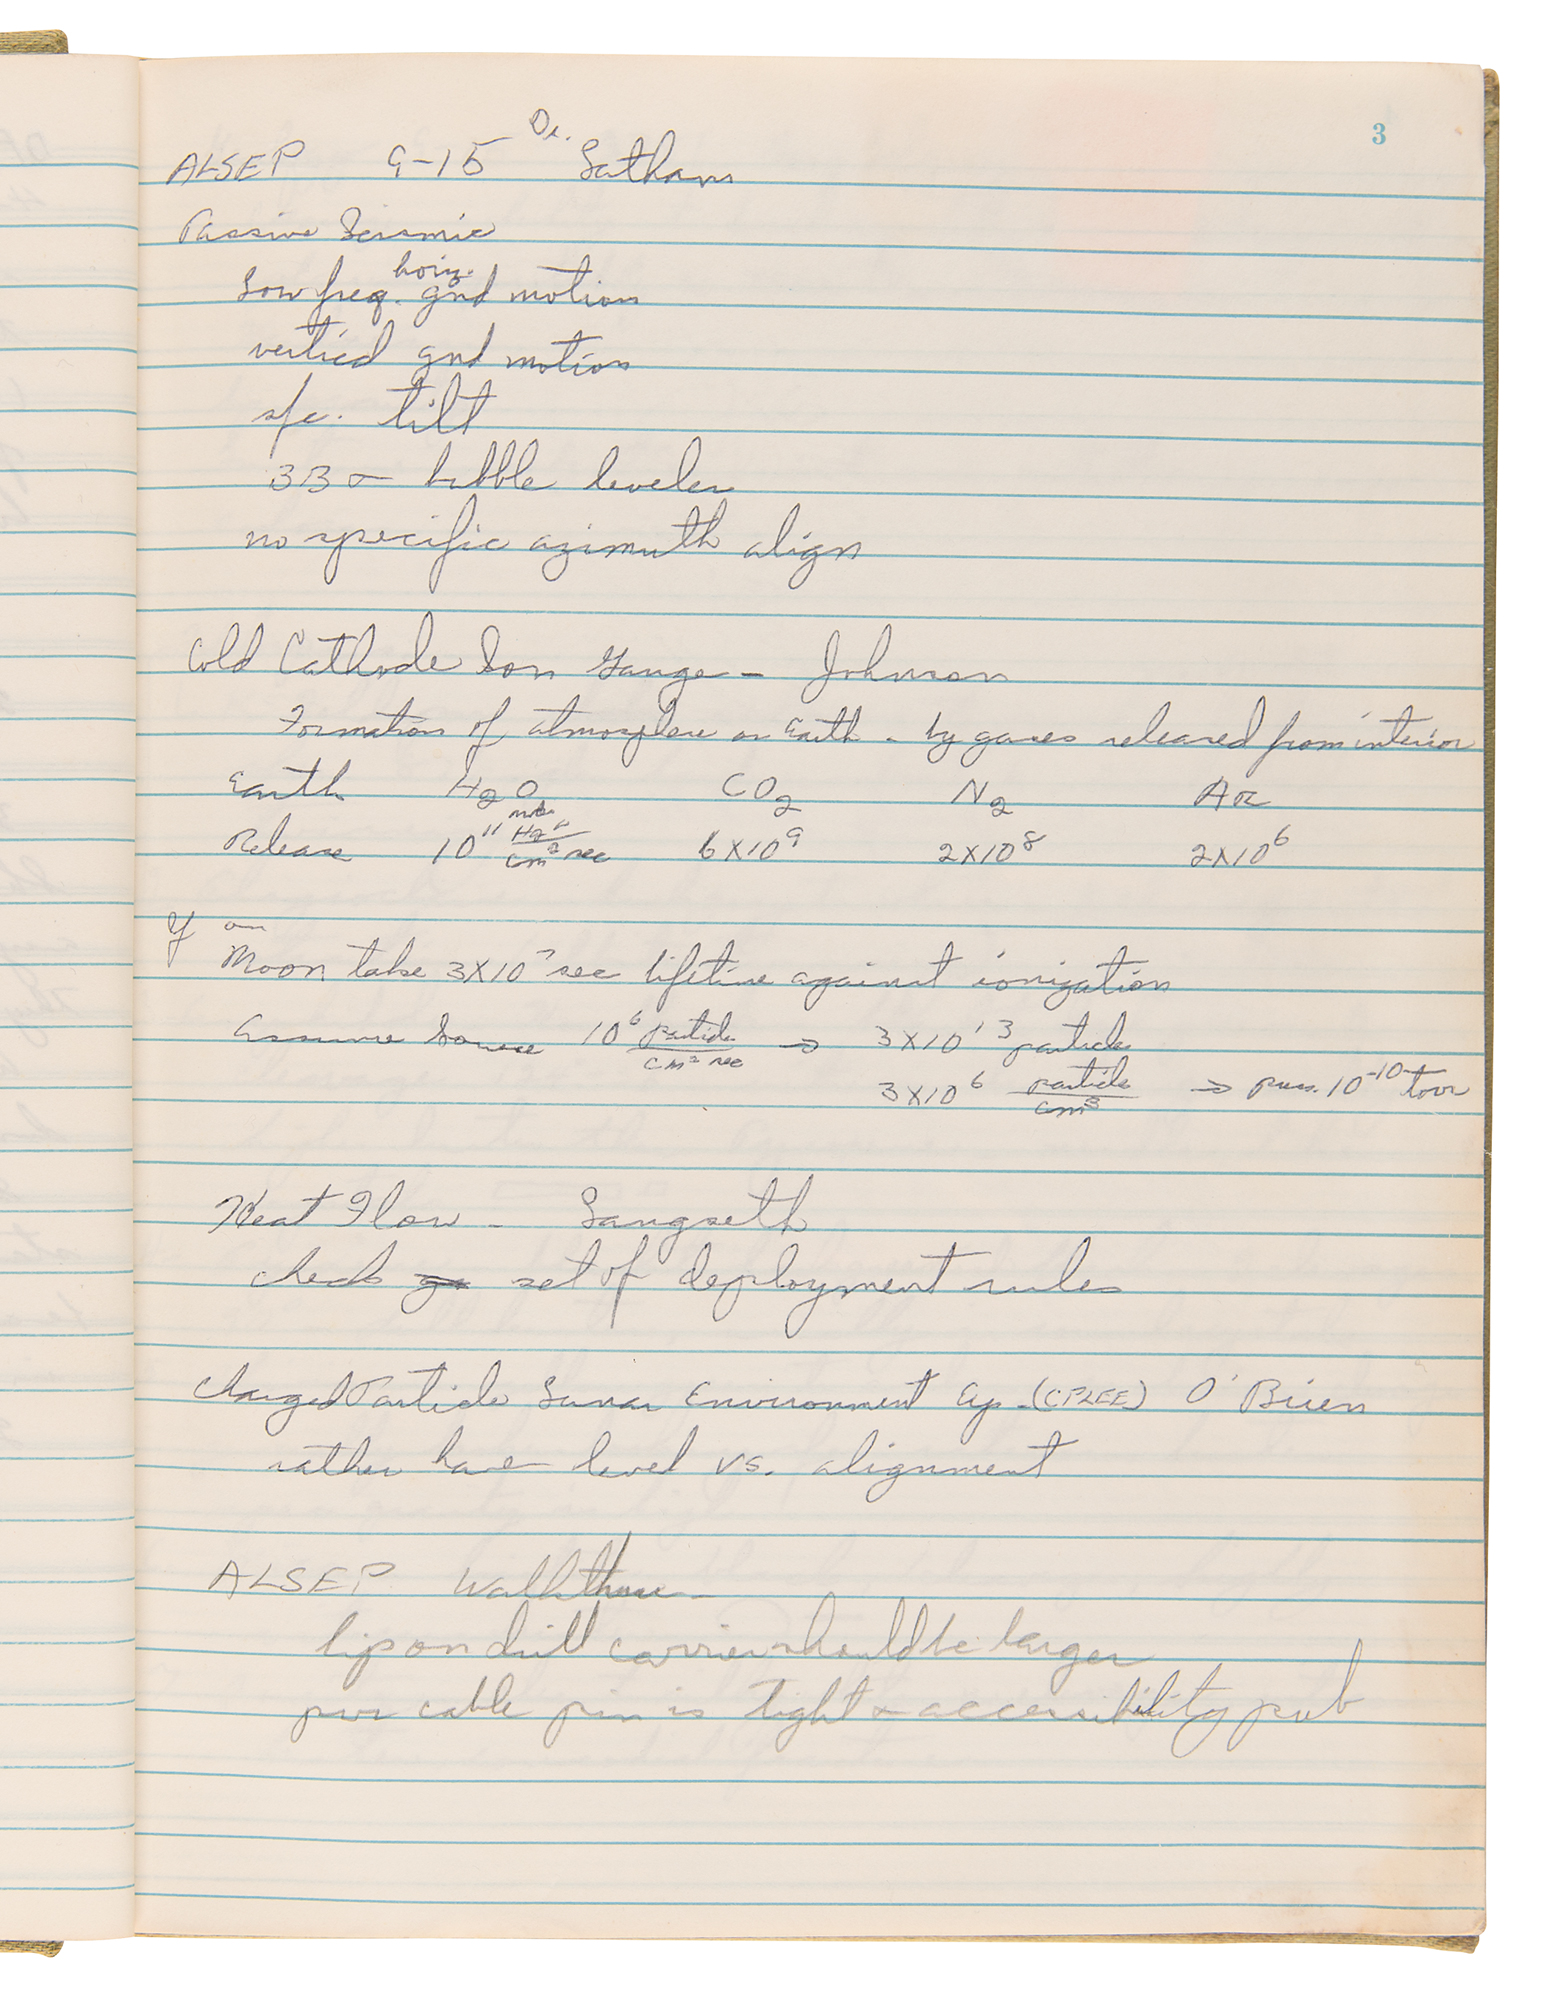 3
ALSEP 9-15 Dr. Latham
Passive Seismic
Low freq. horiz. gnd motion
vertical gnd motion
sfc. tilt
BB or bubble leveler
no specific azimuth align
Cold Cathode Ion Gauge - Johnson
Formation of atmosphere on Earth - by gases released from interior
Earth H2O CO2 N2 Ar
Release 10^11 H2O/cm^2 sec 6X10^9 2X10^8 2X10^6
If on
Moon take 3X10^7 sec lifetime against ionization
Assume Source 10^6 particle/cm^2 sec → 3X10^13 particle
3X10^6 particle/cm^3 → press. 10^-10 torr
Heat Flow - Langseth
check set of deployment rules
Charged Particle Lunar Environment Exp. (CPLEE) O'Brien
rather have level vs. alignment
ALSEP Walkthru -
lip on drill carrier should be larger
pwr cable pin is tight & accessibility prob